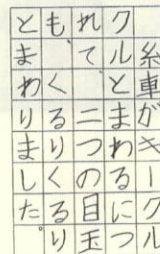 糸車がキークル
クルとまわるにつ
れて、二つの目玉
も、くるりくるり
とまわりました。